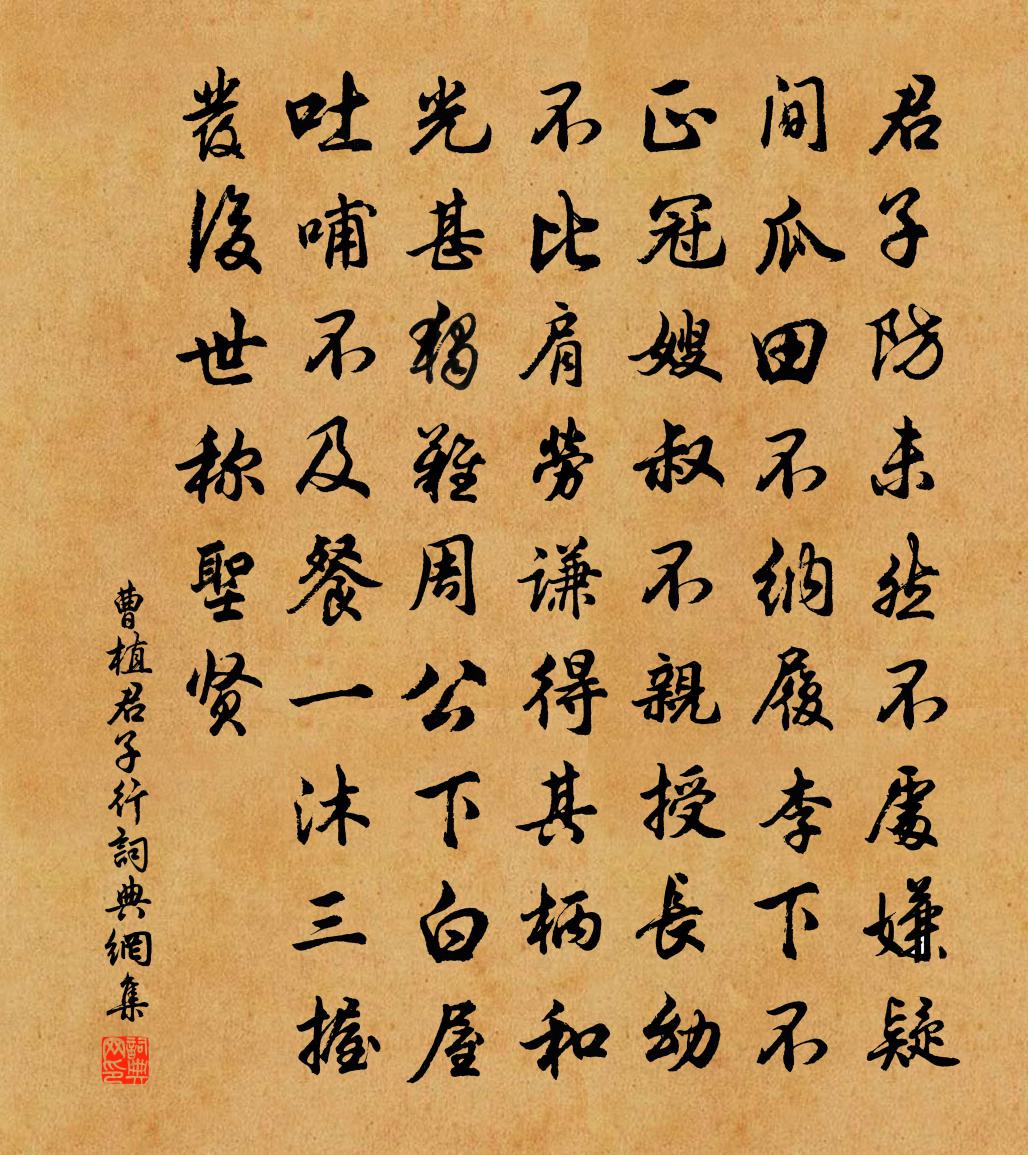 君子防未然不處嫌疑
间瓜田不纳履李下不
正冠嫂叔不親授長幼
不比肩劳谦得其柄和
光甚獨難周公下白屋
吐哺不及餐一沐三握
發後世称聖贤
曹植君子行詞典網集
詞典网印